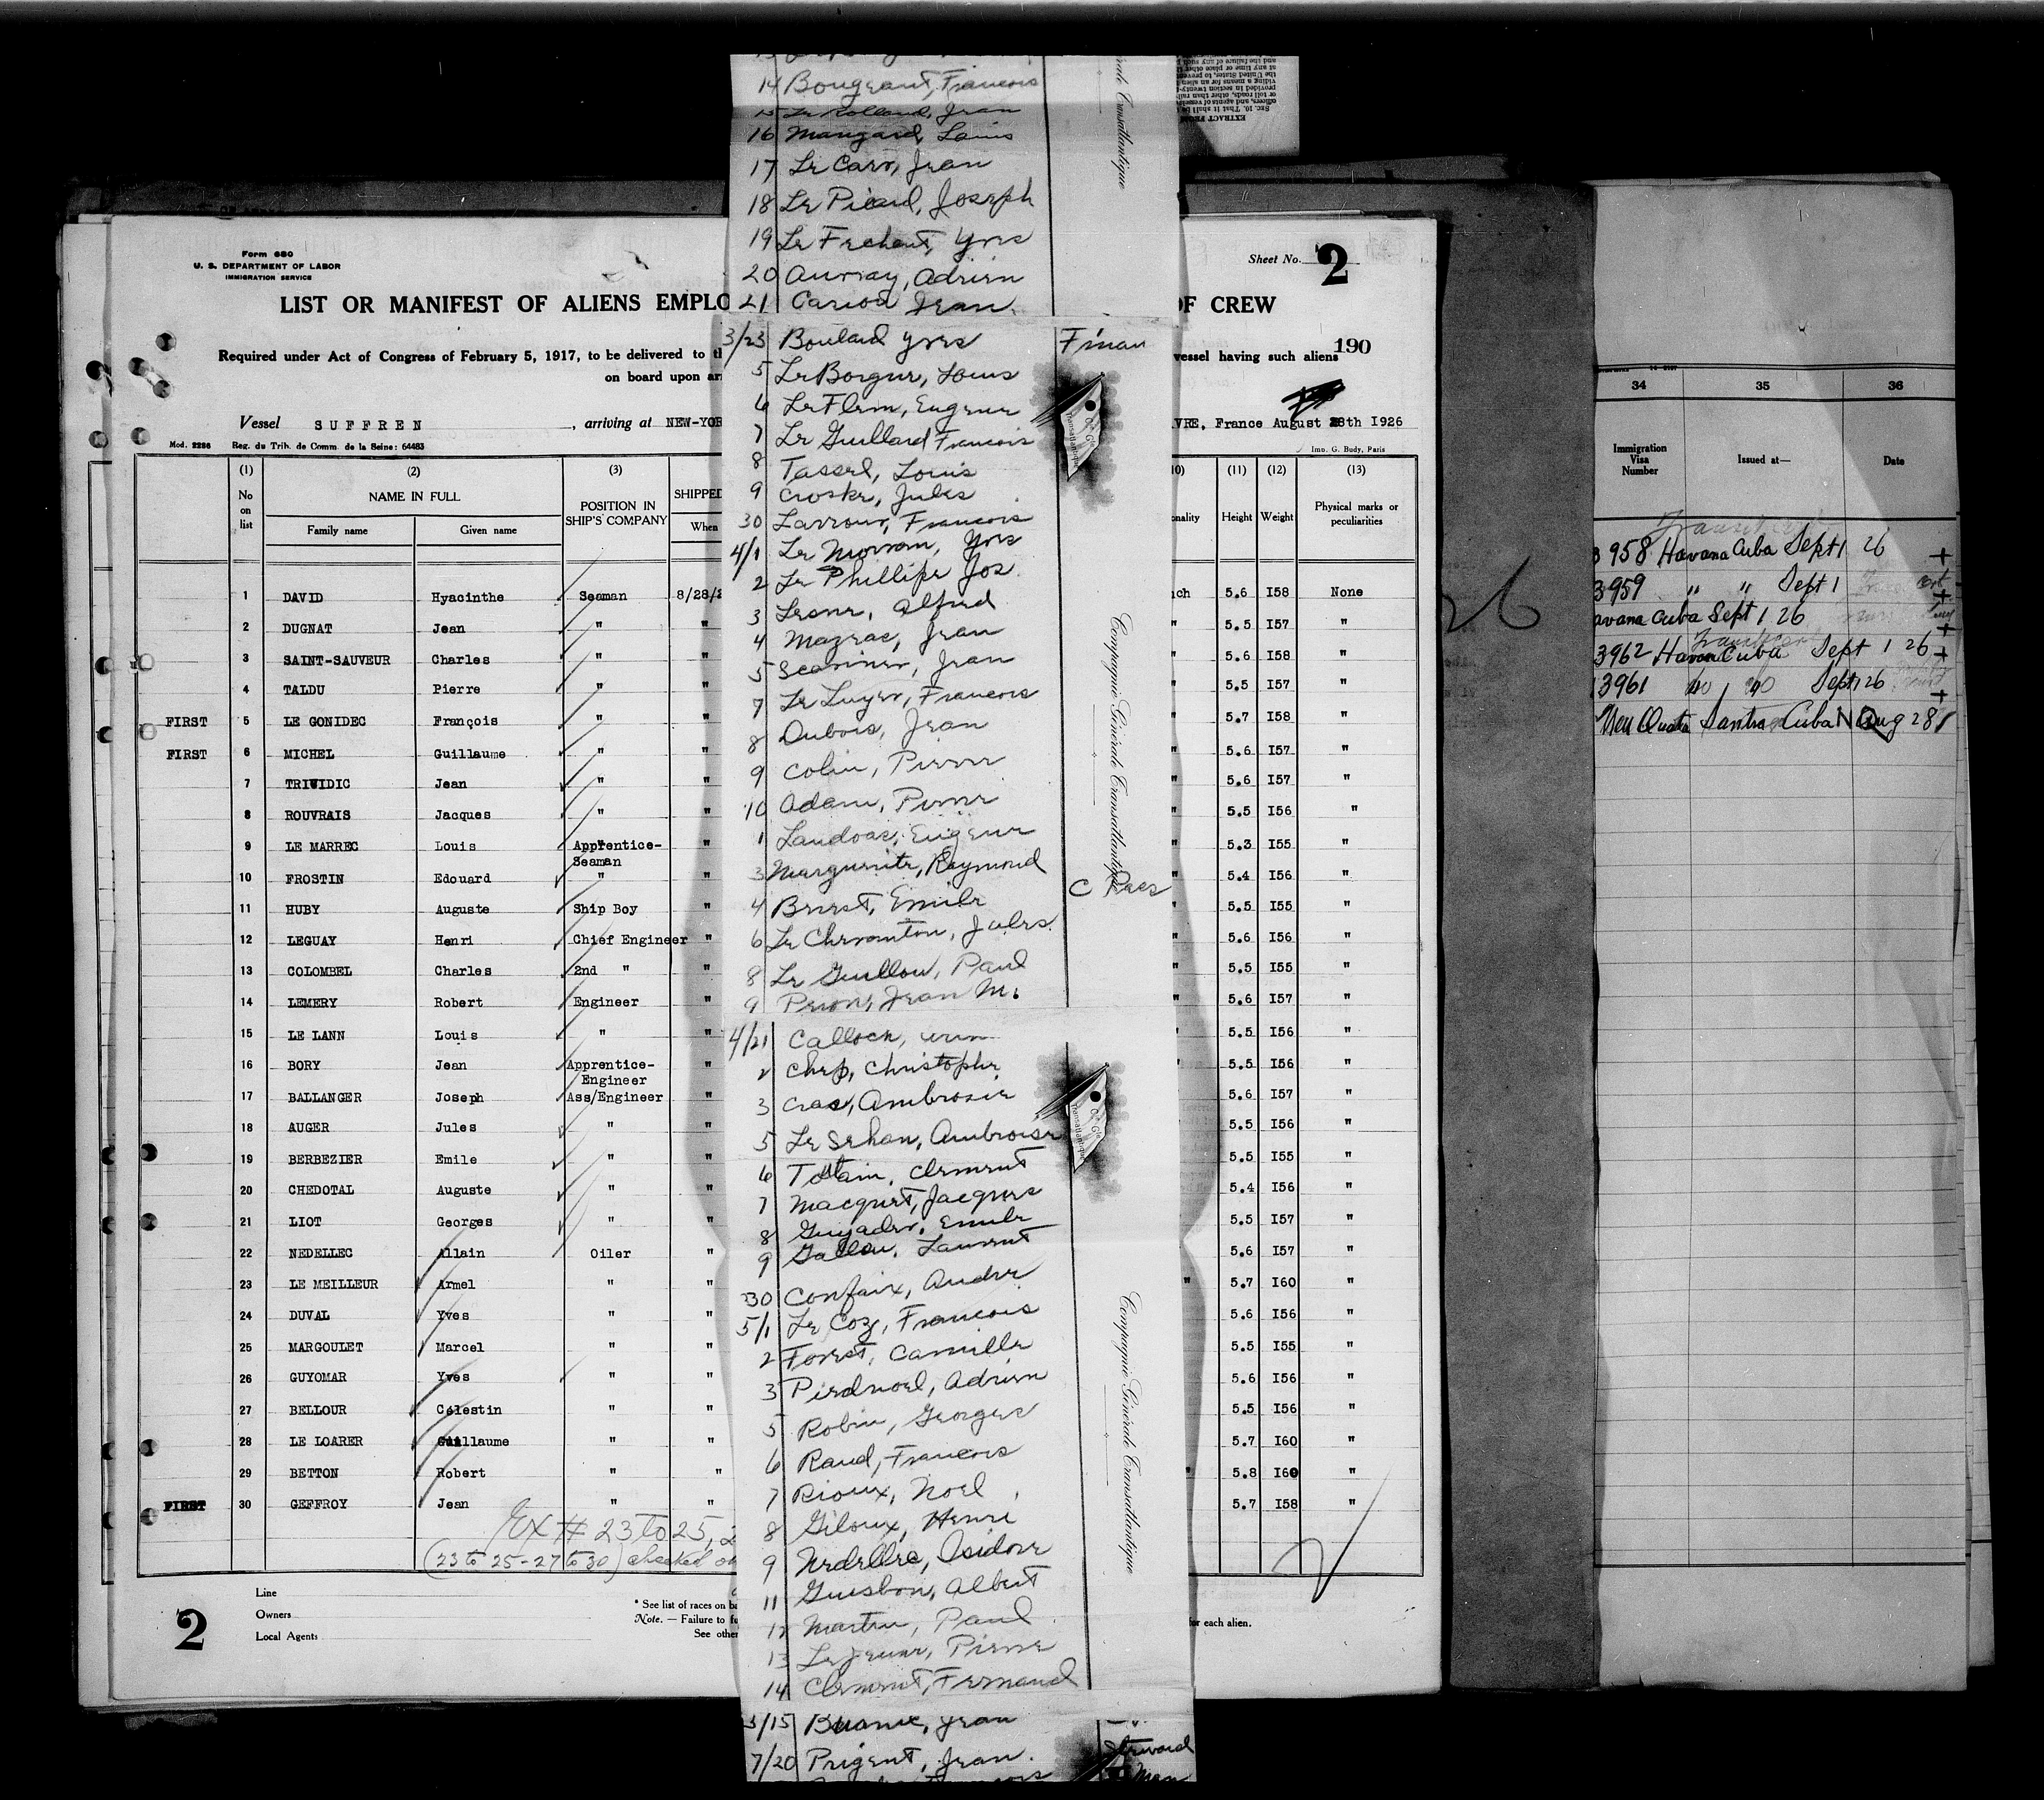 14 Bougeant, Francois
15 Le Rolland, Jean
16 Mangard, Louis
17 Le Carr, Jean
18 Le Picard, Joseph
19 Le Frchant, Yves
20 Auvray, Adrien
21 Cariou Jean
EXTRACT FROM
Générale Transatlantique
Form 680
U. S. DEPARTMENT OF LABOR
IMMIGRATION SERVICE
Sheet No. 2
LIST OR MANIFEST OF ALIENS EMPLO
OF CREW
Required under Act of Congress of February 5, 1917, to be delivered to th
vessel having such aliens
190
on board upon ar
Vessel SUFFREN, arriving at NEW-YOR
VRE, France August 28th 1926
Mod. 2286 Reg. du Trib. de Comm. de la Seine: 64483
Imp. G. Budy, Paris
(1) (2) (3) 10) (11) (12) (13)
No on list NAME IN FULL POSITION IN SHIP'S COMPANY SHIPPED onality Height Weight Physical marks or peculiarities
Family name Given name When
1 DAVID Hyacinthe Seaman 8/28/2 nch 5.6 I58 None
2 DUGNAT Jean " " " 5.5 I57 "
3 SAINT-SAUVEUR Charles " " " 5.6 I58 "
4 TALDU Pierre " " " 5.5 I57 "
FIRST 5 LE GONIDEC François " " " 5.7 I58 "
FIRST 6 MICHEL Guillaume " " " 5.6 I57 "
7 TRIWIDIC Jean " " " 5.6 I57 "
8 ROUVRAIS Jacques " " " 5.5 I56 "
9 LE MARREC Louis Apprentice-Seaman " " 5.3 I55 "
10 FROSTIN Edouard " " " 5.4 I56 "
11 HUBY Auguste Ship Boy " " 5.5 I55 "
12 LEGUAY Henri Chief Engineer " " 5.6 I56 "
13 COLOMBEL Charles 2nd " " " 5.5 I55 "
14 LEMERY Robert Engineer " " 5.6 I57 "
15 LE LANN Louis " " " 5.5 I56 "
16 BORY Jean Apprentice-Engineer " " 5.5 I56 "
17 BALLANGER Joseph Ass/Engineer " " 5.6 I57 "
18 AUGER Jules " " " 5.5 I56 "
19 BERBEZIER Emile " " " 5.5 I55 "
20 CHEDOTAL Auguste " " " 5.4 I56 "
21 LIOT Georges " " " 5.5 I57 "
22 NEDELLEC Allain Oiler " " 5.6 I57 "
23 LE MEILLEUR Armel " " " 5.7 I60 "
24 DUVAL Yves " " 5.6 I56 "
25 MARGOULET Marcel " " 5.5 I55 "
26 GUYOMAR Yves " " 5.6 I56 "
27 BELLOUR Célestin " " 5.5 I56 "
28 LE LOARER Guillaume " " 5.7 I60 "
29 BETTON Robert " " " 5.8 I60 "
FIRST 30 GEFFROY Jean " " 5.7 I58 "
Ex # 23 to 25, 2
(23 to 25-27 to 30) checked on
Line
Owners
Local Agents
2
* See list of races on ba
Note. — Failure to fu
See other
for each alien.
3/23 Boulard Yves
5 Le Borgne, Louis
6 Le Flem, Eugene
7 Le Guillard Francois
8 Tassel, Louis
9 Croske, Jules
30 Larrour, Francois
4/1 Le Morvan, Yves
2 Le Phillipe Jos.
3 Lesne, Alfred
4 Mazeas, Jean
5 Scanner, Jean
7 Le Luyer, Francois
8 Dubois, Jean
9 Colin, Pierre
10 Adam, Pierre
1 Landoas, Eugene
3 Marguerite, Raymond
4 Brest, Emile
6 Le Chevanton, Jules
8 Le Guillou, Paul
9 Prione, Jean M.
C Pass
Cie Gle Transatlantique
Compagnie Générale Transatlantique
4/21 Calloch,
2 Chep, Christophe
3 Crae, Ambrosie
5 Le Sehan, Ambroise
6 Totain, Clement
7 Macquet, Jacques
8 Guyader, Emile
9 Gallou, Laurent
30 Confaix, Andre
5/1 Le Coz, Francois
2 Forest, Camille
3 Piednoel, Adrien
5 Robin, Georges
6 Raud, Francois
7 Rioux, Noel
8 Giloux, Henri
9 Nedellec, Isidore
11 Guesbon, Albert
12 Martin, Paul
13 Le Jeune, Pierre
14 Clement, Fernand
Cie Gle Transatlantique
Compagnie Générale Transatlantique
3/15 Buanic, Jean
7/20 Prigent, Jean
Steward
26
34 35 36
Immigration Visa Number Issued at— Date
3958 Havana Cuba Sept 1 26
3959 " " Sept 1
avana Cuba Sept 1 26
3962 Havana Cuba Sept 1 26
13961 Sept 1 26
Cuba Aug 28